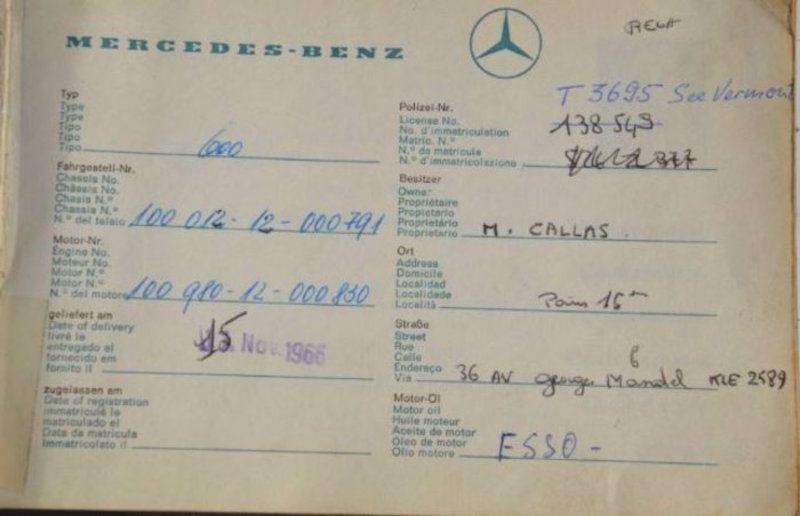 MERCEDES-BENZ
Typ
Type
Type
Tipo
Tipo
Tipo
600
Fahrgestell-Nr.
Chassis No.
Châssis No.
Chasis N.º
Chassis N.º
N.º del telaio 100 012-12-000791
Motor-Nr.
Engine No.
Moteur No.
Motor N.º
Motor N.º
N.º del motore 100 980-12-000830
geliefert am
Date of delivery
livré le
entregado el
fornecido em
fornito il
15 Nov. 1966
zugelassen am
Date of registration
immatriculé le
matriculado el
Data da matricula
immatricolato il
T 3695 See Vermont
Polizei-Nr.
License No.
No. d'immatriculation
Matric. N.º
N.º da matricula
N.º d'immatricolazione
138549
Besitzer
Owner
Propriétaire
Propietario
Proprietário
Proprietario M. CALLAS
Ort
Address
Domicile
Localidad
Localidade
Località Paris 16
Straße
Street
Rue
Calle
Endereço
Via 36 AV georges Mandel KLE 2589
Motor-Öl
Motor oil
Huile moteur
Aceite de motor
Óleo de motor
Olio motore ESSO -